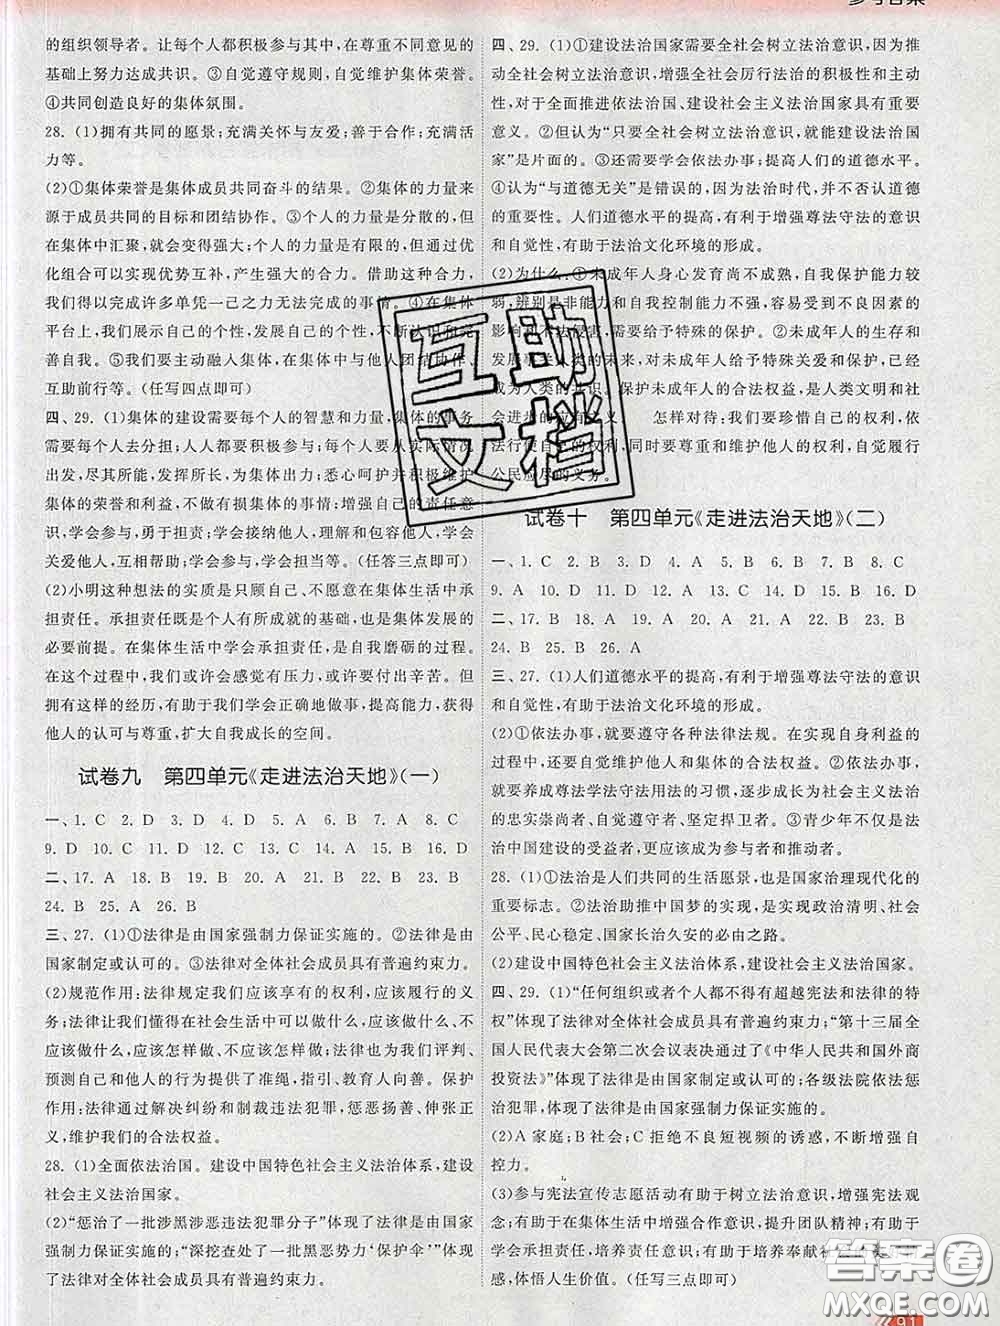 参考答案
的组织领导者。让每个人都积极参与其中,在尊重多数人意愿的
基础上努力达成共识。③自觉遵守规则,自觉维护集体荣誉。
④共同创造良好的集体氛围。
28. (1)拥有共同的愿景;充满关怀与友爱;善于合作;充满活
力等。
(2)①集体荣誉是集体成员共同奋斗的结果。②集体的力量来
源于成员共同的目标和团结协作。③个人的力量是分散的,但
在集体中汇聚,就会变得强大;个人的力量是有限的,但通过优
化组合可以实现优势互补,产生强大的合力。借助这种合力,
我们得以完成许多单凭一己之力无法完成的事情。④在集体
平台上,我们发展自己的个性,不断认识自己
善自我。⑤我们要主动融入集体,在集体中与他人团结协作、
互助前行等。(任写四点即可)
四、29. (1)集体的建设需要每个人的智慧和力量,集体的事务
需要每个人去分担;人人都要积极参与;每个人要从实际情况
出发,尽其所能,发挥所长,为集体出力;悉心呵护并积极维护
集体的荣誉和利益,不做有损集体的事情;增强自己的责任意
识,学会参与,勇于担责;学会接纳他人,欣赏他人,学会
关爱他人,互相帮助;学会参与,学会担当等。(任答三点即可)
(2)小明这种想法的实质是只顾自己、不愿意在集体生活中承
担责任。承担责任既是个人有所成就的基础,也是集体发展的
必要前提。在集体生活中学会承担责任,是自我磨砺的过程。
在这个过程中,我们或许会感觉有压力,或许需要付出辛苦。但
拥有这样的经历,有助于我们学会正确地做事,提高能力,获得
他人的认可与尊重,扩大自我成长的空间。
试卷九 第四单元《走进法治天地》(一)
一、1. C 2. D 3. D 4. D 5. D 6. B 7. A 8. C
9. D 10. C 11. D 12. C 13. B 14. A 15. B 16. D
二、17. A 18. B 19. B 20. B 21. A 22. A 23. A
24. B 25. A 26. B
三、27. (1)①法律是由国家强制力保证实施的。②法律是由
国家制定或认可的。③法律对全体社会成员具有普遍约束力。
(2)规范作用:法律规定我们应该享有的权利,应该履行的义
务;法律让我们懂得在社会生活中可以做什么,应该做什么、不
应该做什么,应该怎样做、不应该怎样做;法律也为我们评判、
预测自己和他人的行为提供了准绳,指引、教育人向善。保护
作用:法律通过解决纠纷和制裁违法犯罪,惩恶扬善、伸张正
义,维护我们的合法权益。
28. (1)全面依法治国。建设中国特色社会主义法治体系,建设
社会主义法治国家。
(2)“惩治了一批涉黑涉恶违法犯罪分子”体现了法律是由国家
强制力保证实施的;“深挖查处了一批黑恶势力‘保护伞’”体现
了法律对全体社会成员具有普遍约束力。
四、29. (1)①建设法治国家需要全社会树立法治意识,因为
推动全社会树立法治意识,增强全社会厉行法治的积极性和主动
性,对于全面推进依法治国、建设社会主义法治国家具有重要
意义。②但认为“只要全社会树立法治意识,就能建设法治国
家”是片面的。③还需要学会依法办事;提高人们的道德水平。
④认为“与道德无关”是错误的,因为法治时代,并不否认道德
的重要性。人们道德水平的提高,有利于增强尊法守法的意识
和自觉性,有助于法治文化环境的形成。
(2)为什么:①未成年人身心发育尚不成熟,自我保护能力较
弱,辨别是非能力和自我控制能力不强,容易受到不良因素的
影响和不法侵害,需要给予特殊的保护。②未成年人的生存和
发展事关人类的未来,对未成年人给予特殊关爱和保护,已经
成为人类的共识。③保护未成年人的合法权益,是人类文明和社
会进步的应有之义。 怎样对待:我们要珍惜自己的权利,依
法行使自己的权利,同时要尊重和维护他人的权利,自觉履行
公民应尽的义务。
试卷十 第四单元《走进法治天地》(二)
一、1. C 2. B 3. D 4. A 5. D 6. C 7. B 8. C
9. A 10. D 11. D 12. A 13. C 14. B 15. D 16. D
二、17. B 18. A 19. A 20. A 21. A 22. B 23. B
24. B 25. B 26. A
三、27. (1)人们道德水平的提高,有利于增强尊法守法的意识
和自觉性,有助于法治文化环境的形成。
(2)①依法办事,就要遵守各种法律法规。在实现自身利益的
过程中,无论是行使权利还是履行义务,都要依法而行。②依法办事,
就要养成尊法学法守法用法的习惯,逐步成长为社会主义法治
的忠实崇尚者、自觉遵守者、坚定捍卫者。③青少年不仅是法
治中国建设的受益者,更应该成为参与者和推动者。
28. (1)①法治是人们共同的生活愿景,也是国家治理现代化的
重要标志。②法治助推中国梦的实现,是实现政治清明、社会
公平、民心稳定、国家长治久安的必由之路。
(2)建设中国特色社会主义法治体系,建设社会主义法治国家。
四、29. (1)“任何组织或者个人都不得有超越宪法和法律的特
权”体现了法律对全体社会成员具有普遍约束力;“第十三届全
国人民代表大会第二次会议表决通过了《中华人民共和国外商
投资法》”体现了法律是由国家制定或认可的;各级法院依法惩
治犯罪,体现了法律是由国家强制力保证实施的。
(2)A家庭;B社会;C拒绝不良短视频的诱惑,不断增强自
控力。
(3)参与宪法宣传志愿活动有助于树立法治意识,增强宪法观
念;有助于在集体生活中增强合作意识,提升团队精神;有助于
学会承担责任,培养责任意识;有助于培养奉献
感,体悟人生价值。(任写三点即可)
互助
文档
答案圈
MXQE.COM
91